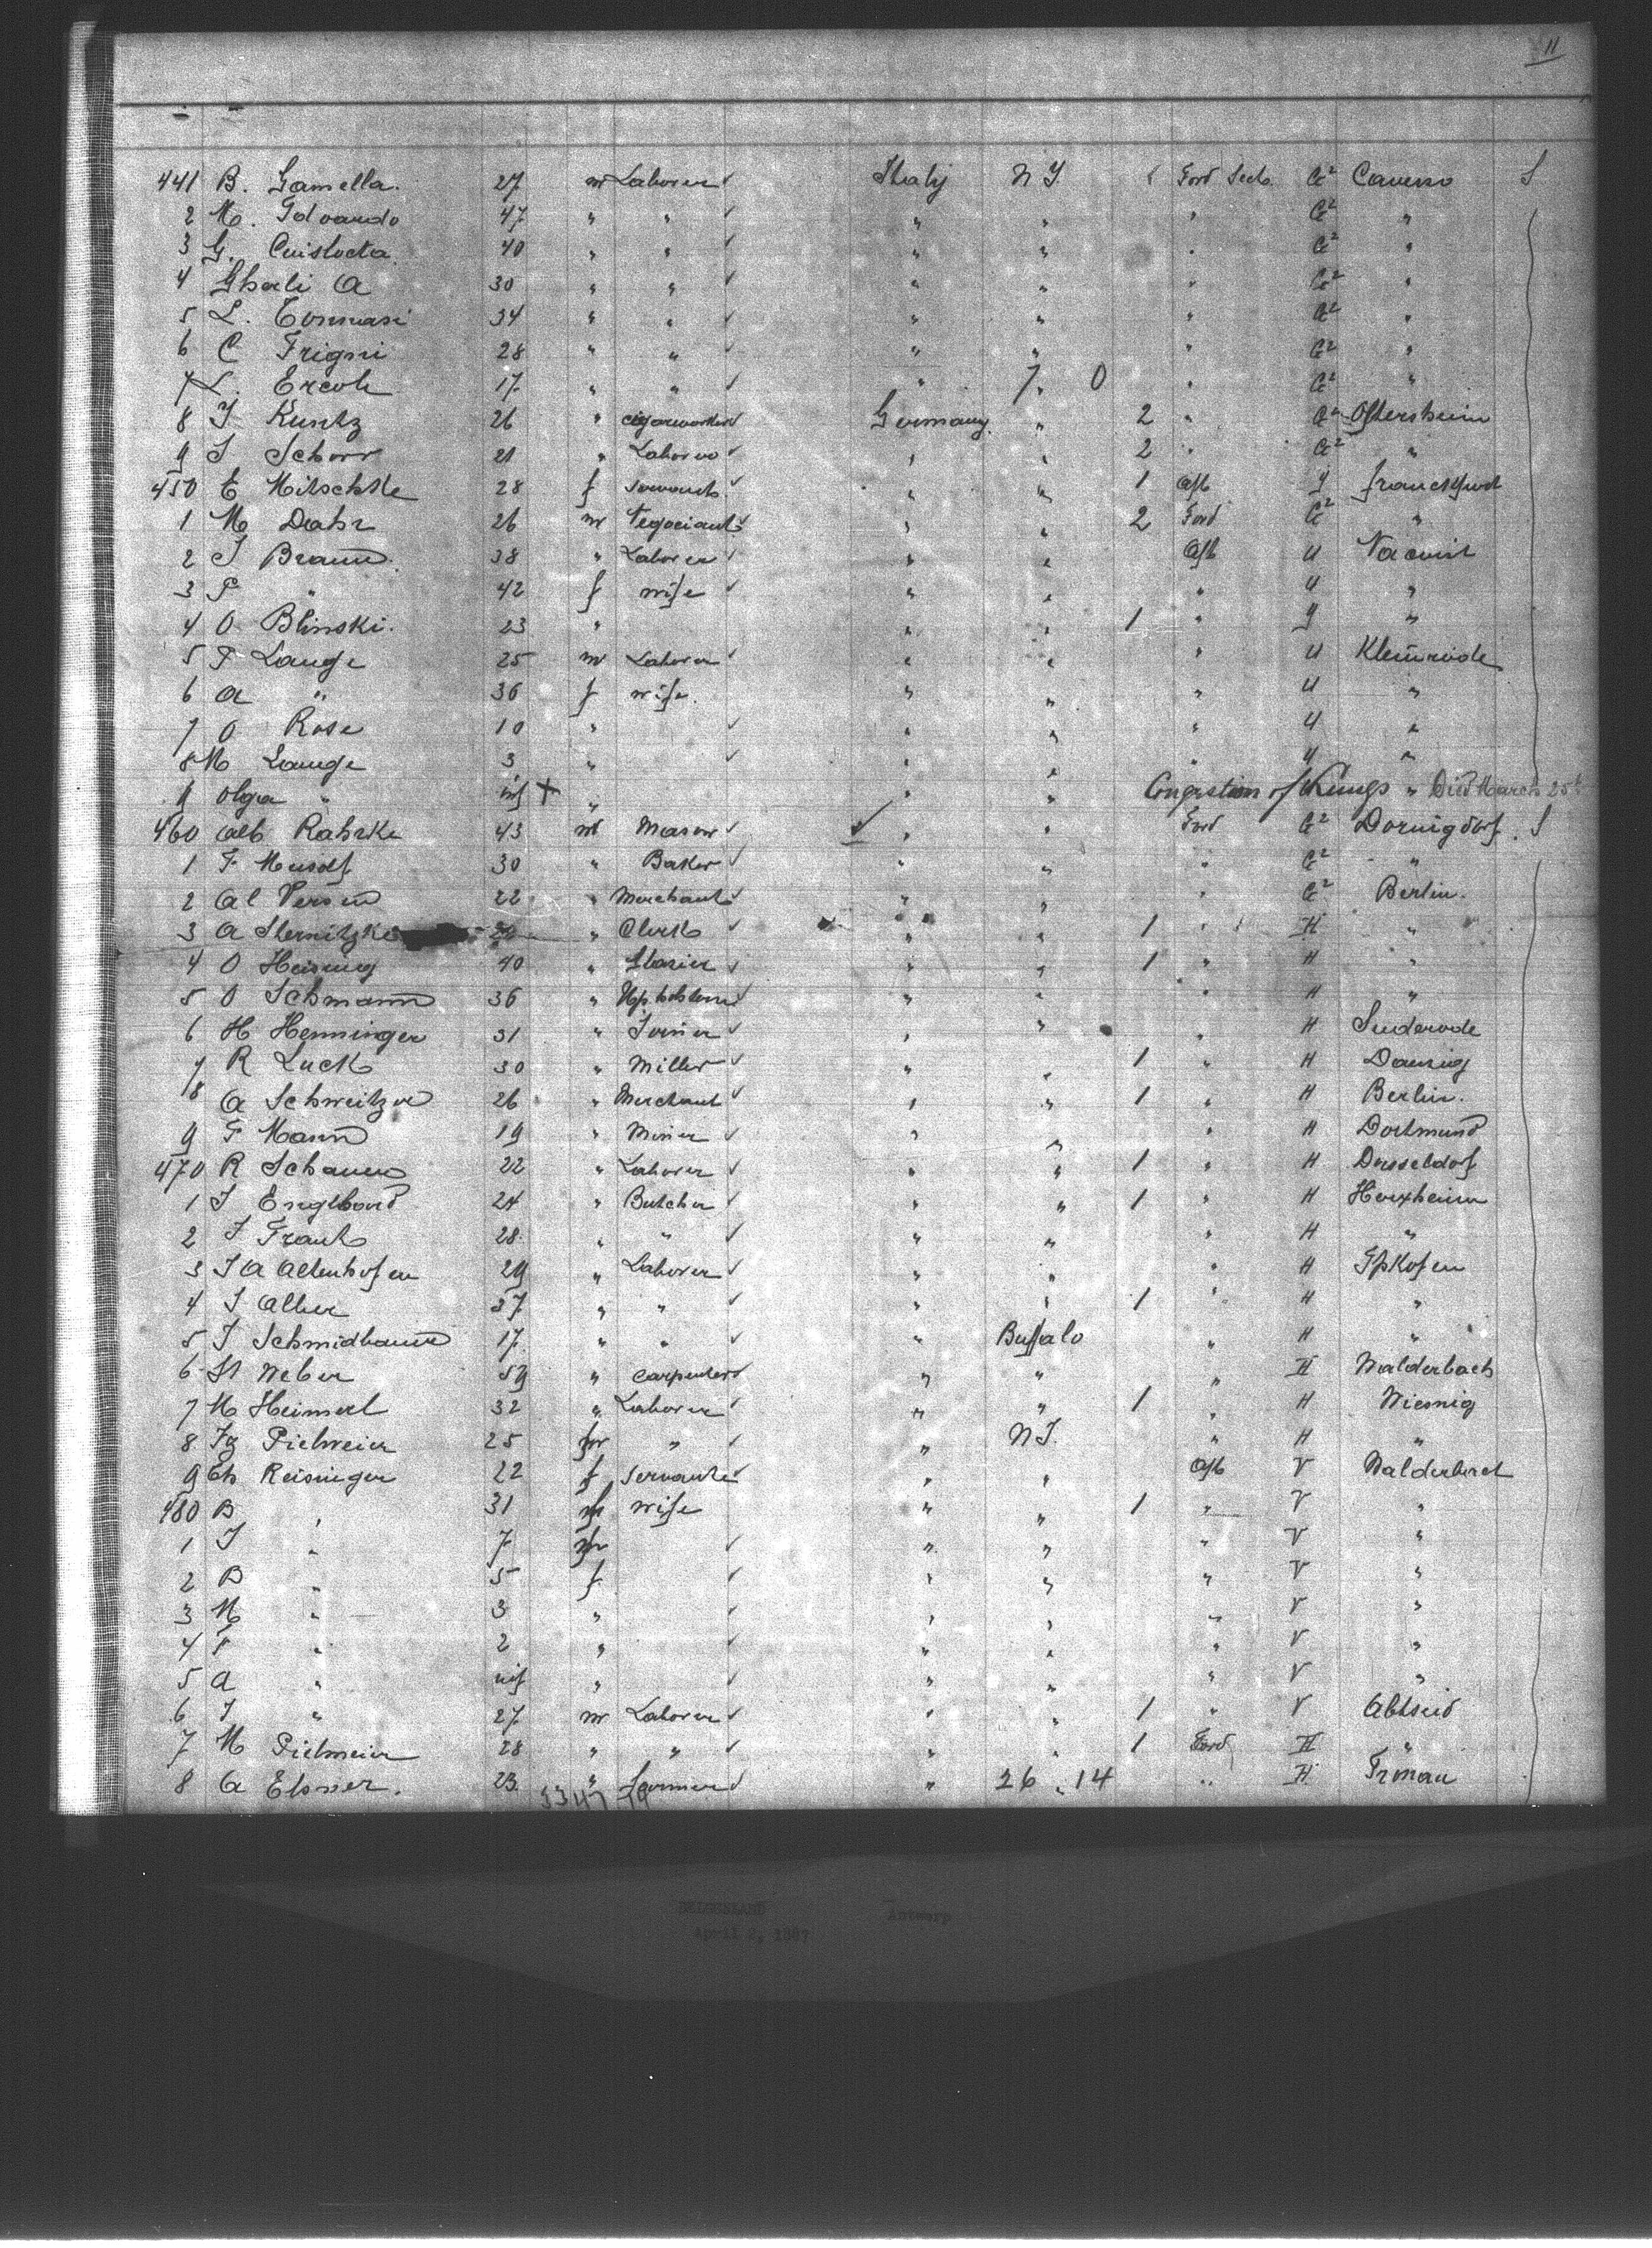 11
441 B. Gamella. 27 m Laborer Italy N Y. Ford Seck. C² Caverso S
2 M. Edoardo 47 " " " " " C² "
3 G. 40 " " " " " C² "
4 Gherli A 30 " " " " " C² "
5 L. Tommasi 34 " " " " " C² "
6 C Frigni 28 " " " " " C² "
7 L. Ercole 17 " " " 7. 0 " C² "
8 J Kuntz 26 " cigarworker Germany. " 2 " C² Oftersheim
9 J Schorr 21 " Laborer " " 2 " C² "
450 E Nitschke 28 f servant " " 1 Aft Y
1 M Dahr 26 m Negociant " " 2 Ford C² "
2 J Braun 38 " Laborer " " Aft U
3 P " 42 f wife " " " U "
4 O Blinski. 23 " " " 1 " Y "
5 P Lange 25 m Laborer " " " U Kleinrode
6 A " 36 f wife. " " " U "
7 O Rose 10 " " " " U "
8 M Lange 3 " " " " U "
9 Olga " inf + " " " Congestion of Lungs " Died March 25t
460 Alb Rahske 43 m Mason " " Ford C² Dornigdorf. S
1 F Meusolf 30 " Baker " " " C² "
2 Al Versen 22 " Merchant " " " C² Berlin.
3 A Sternitzke " Clerk " " 1 " H "
4 O Heising 40 " Glasier " " 1 " H "
5 O Schmann 36 " Upholsterer " " " H "
6 H Henninger 31 " Joiner " " " H Suderode
7 R Luck 30 " Miller " " 1 " H Danzig
8 A Schweitzer 26 " Merchant " " 1 " H Berlin.
9 F Mann 19 " Miner " " " H Dortmund
470 R Schauer 22 " Laborer " " 1 " H Dusseldorf
1 J Englhard 24 " Butcher " " 1 " H Herxheim
2 J Frank 28. " " " " " H "
3 J A Altenhofen 29 " Laborer " " " H Ipkofen
4 J Alber 37 " " " " 1 " H "
5 J Schmidbauer 17. " " " Buffalo " H "
6 St Weber 59 " carpenter " " " H Walderbach
7 M Heimerl 32 " Laborer " " 1 " H Wiesnig
8 Jg Pielmeier 25 m " " N Y. " H "
9 Th Reisinger 22 f servante " " Aft V Walderbach
480 B " 31 f wife " " 1 " V "
1 J " 7 m " " " V "
2 B " 5 f " " " V "
3 M " 3 " " " " V "
4 F " 2 " " " " V "
5 A " inf " " " " V "
6 J " 27 m Laborer " " 1 " V
7 M Pielmeier 28 " " " " 1 Ford H "
8 A Elsner. 23. " farmer " 26 . 14 " H
BELGENLAND Antwerp
April 2, 1887